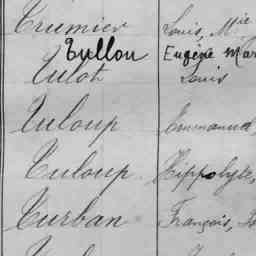 Trumier Louis, Mie
Tullou Eugène Mar
Tulot Louis
Tuloup Emmanuel
Tuloup Hippolyte,
Turban François,